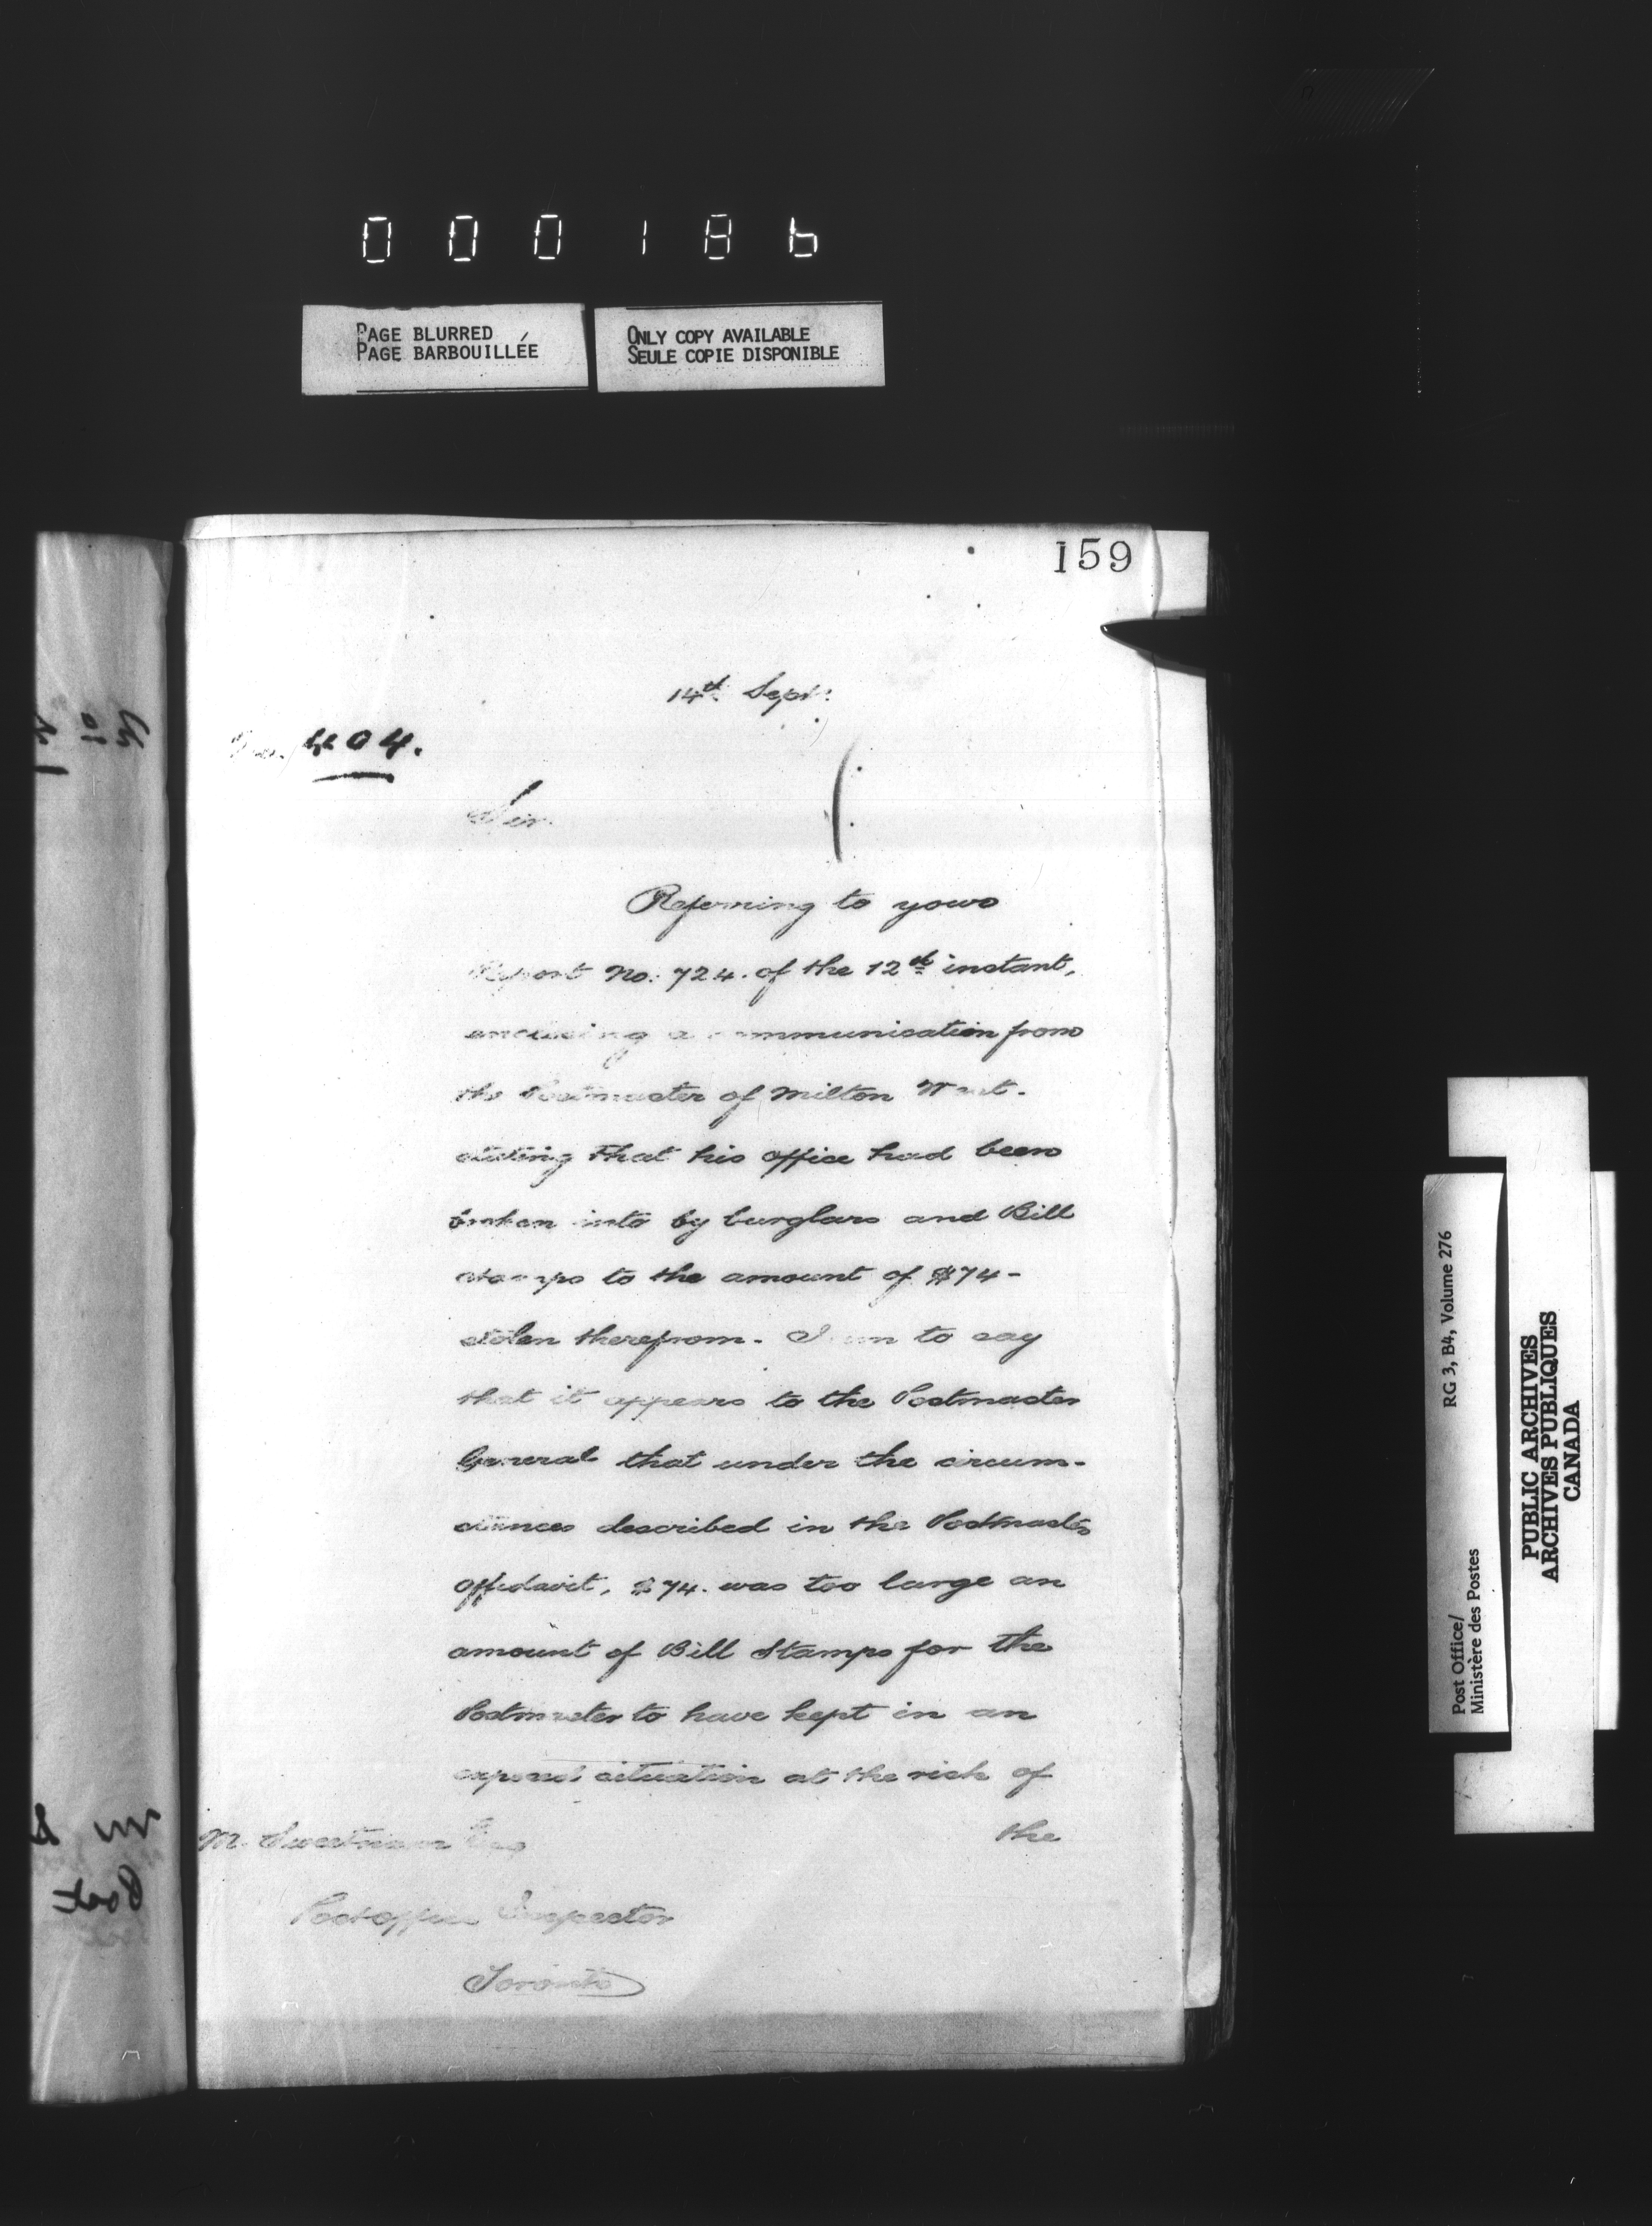 000186
PAGE BLURRED
PAGE BARBOUILLÉE
ONLY COPY AVAILABLE
SEULE COPIE DISPONIBLE
159
14th Sept.
No. 404.
Sir.
Referring to your
Report No. 724. of the 12th instant,
enclosing a communication from
the Postmaster of Milton West.
stating that his office had been
broken into by burglars and Bill
stamps to the amount of $74-
stolen therefrom. I am to say
that it appears to the Postmaster
General that under the circum-
stances described in the Postmasters
affidavit, $74. was too large an
amount of Bill Stamps for the
Postmaster to have kept in an
exposed situation at the risk of
the
M. Sweetnam Esq
Post office Inspector
Toronto
Post Office/
Ministère des Postes
RG 3, B4, Volume 276
PUBLIC ARCHIVES
ARCHIVES PUBLIQUES
CANADA